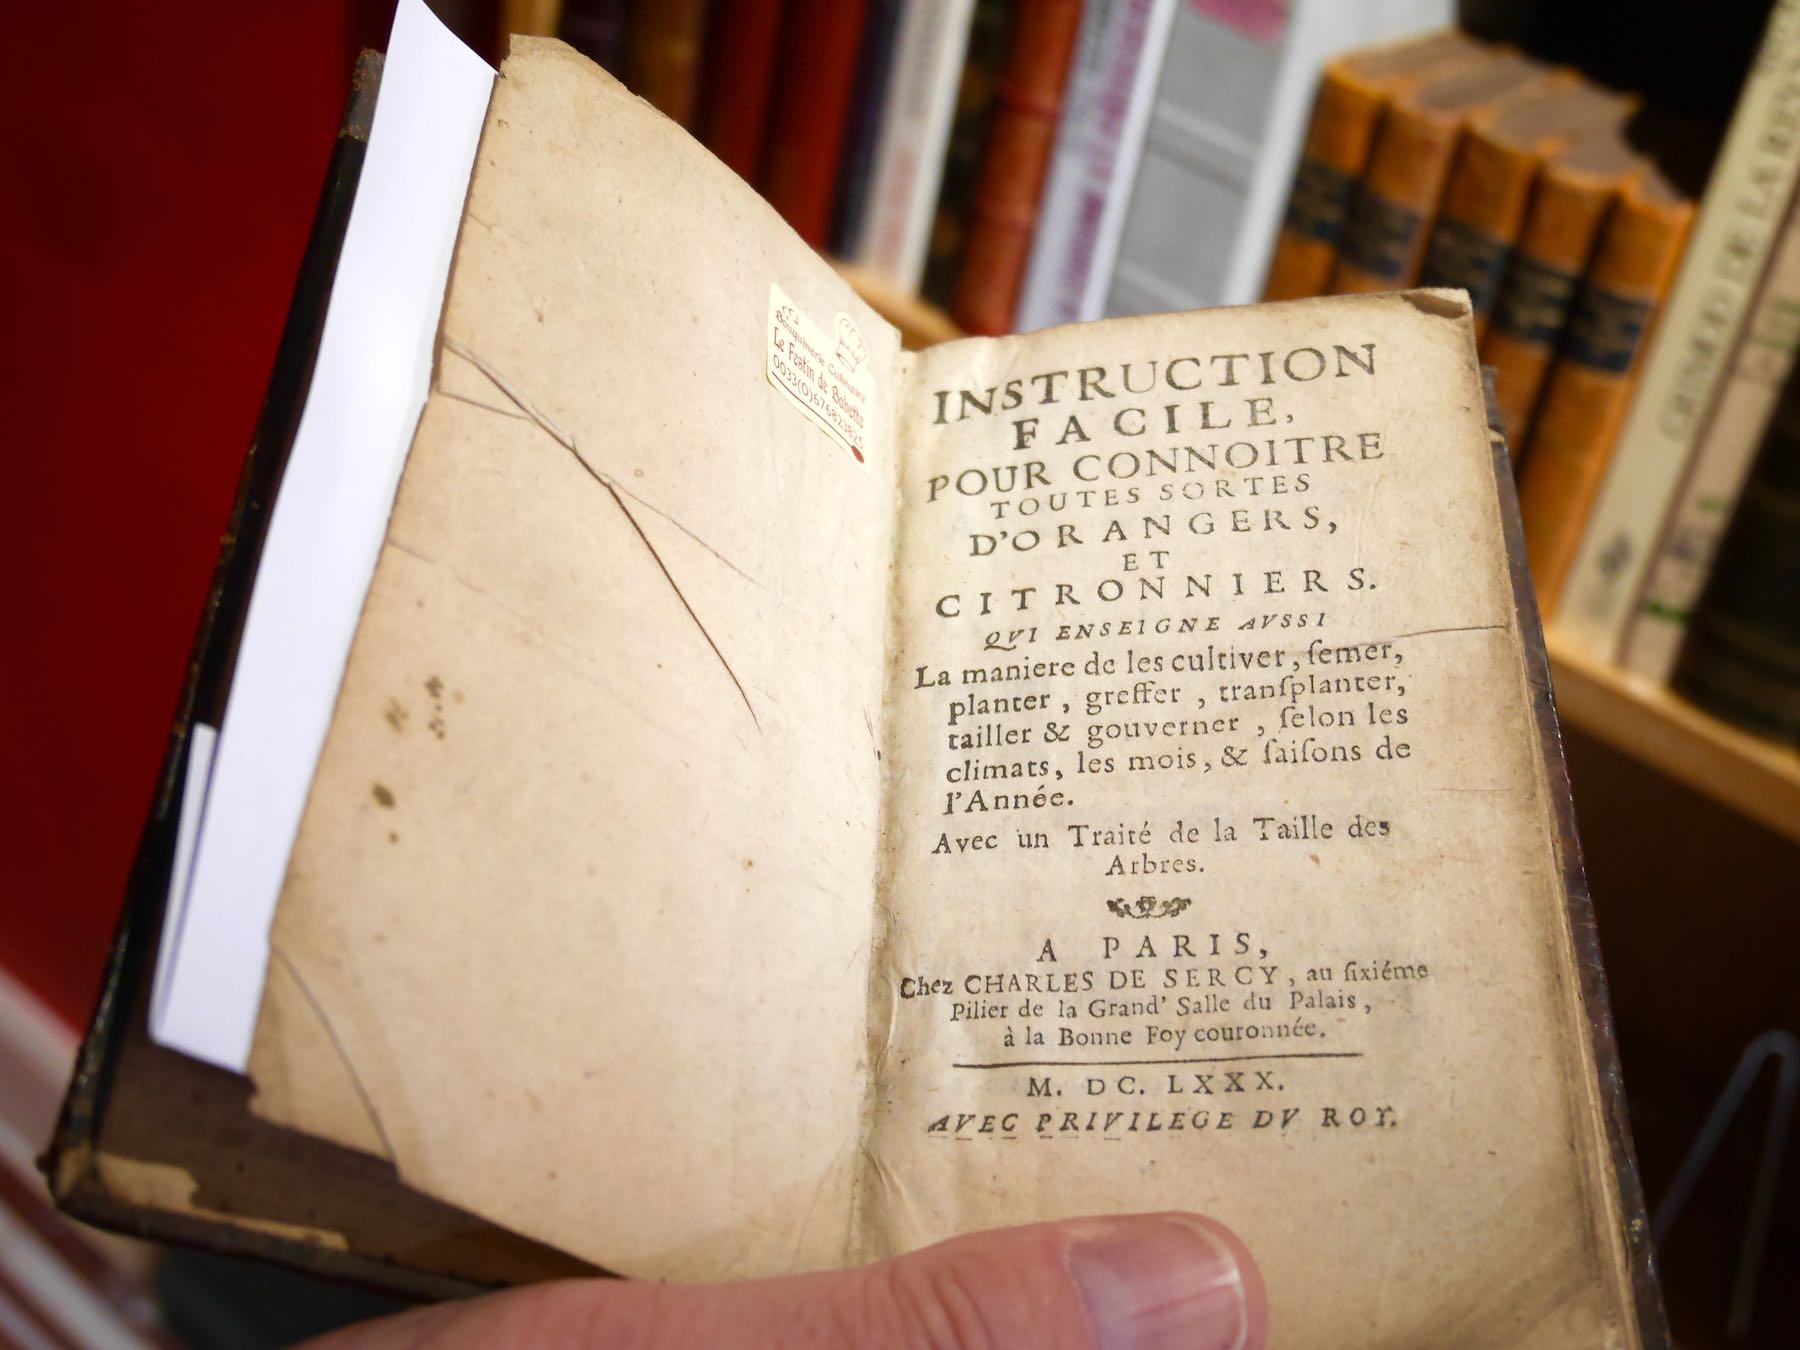 Bouquinerie Culinaire
Le Festin de Babette
0033(0)676823825
INSTRUCTION
FACILE,
POUR CONNOITRE
TOUTES SORTES
D'ORANGERS,
ET
CITRONNIERS.
QVI ENSEIGNE AVSSI
La maniere de les cultiver, ſemer,
planter, greffer, tranſplanter,
tailler & gouverner, ſelon les
climats, les mois, & ſaiſons de
l'Année.
Avec un Traité de la Taille des
Arbres.
A PARIS,
Chez CHARLES DE SERCY, au ſixiéme
Pilier de la Grand' Salle du Palais,
à la Bonne Foy couronnée.
M. DC. LXXX.
AVEC PRIVILEGE DV ROY.